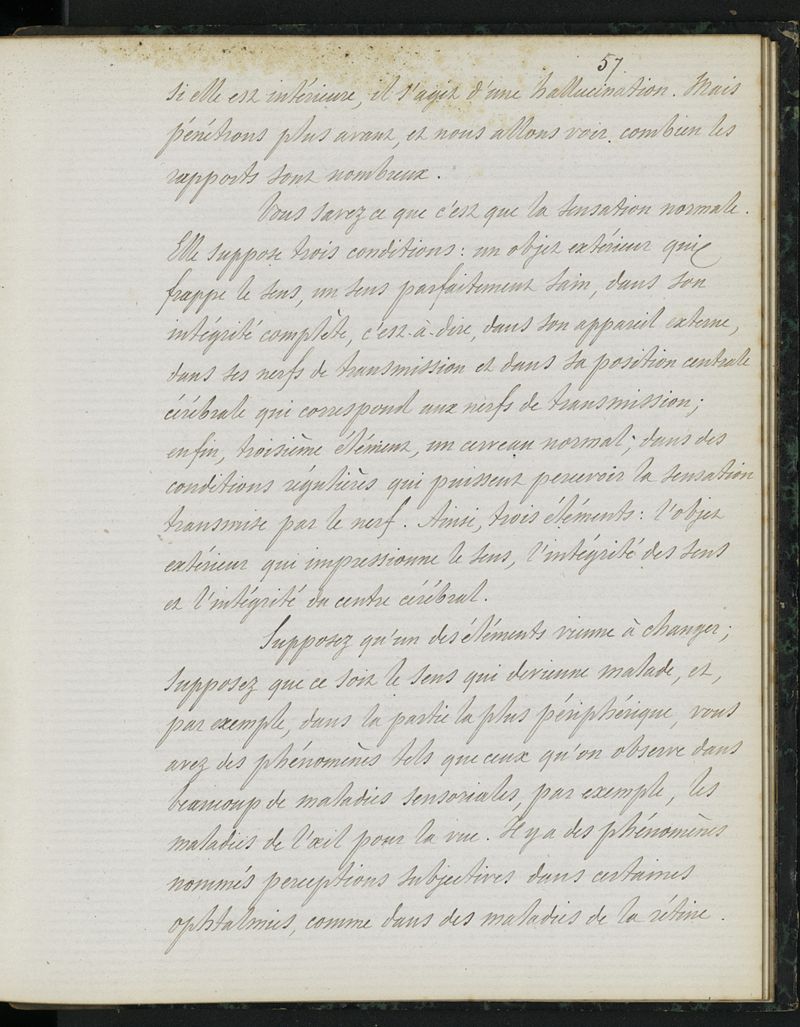 57
si elle est intérieure, il s'agit d'une hallucination. Mais
pénétrons plus avant, et nous allons voir combien les
rapports sont nombreux.
Vous savez ce que c'est que la sensation normale.
Elle suppose trois conditions : un objet extérieur qui
frappe le sens, un sens parfaitement sain, dans son
intégrité complète, c'est-à-dire, dans son appareil externe,
dans ses nerfs de transmission et dans sa position centrale
cérébrale qui correspond aux nerfs de transmission ;
enfin, troisième élément, un cerveau normal, dans des
conditions régulières qui puissent percevoir la sensation
transmise par le nerf. Ainsi, trois éléments : l'objet
extérieur qui impressionne le sens, l'intégrité des sens
et l'intégrité du centre cérébral.
Supposez qu'un des éléments vienne à changer ;
supposez que ce soit le sens qui devienne malade, et,
par exemple, dans la partie la plus périphérique, vous
avez des phénomènes tels que ceux qu'on observe dans
beaucoup de maladies sensoriales, par exemple, les
maladies de l'œil pour la vue. Il y a des phénomènes
nommés perceptions subjectives dans certaines
ophtalmies, comme dans des maladies de la rétine.